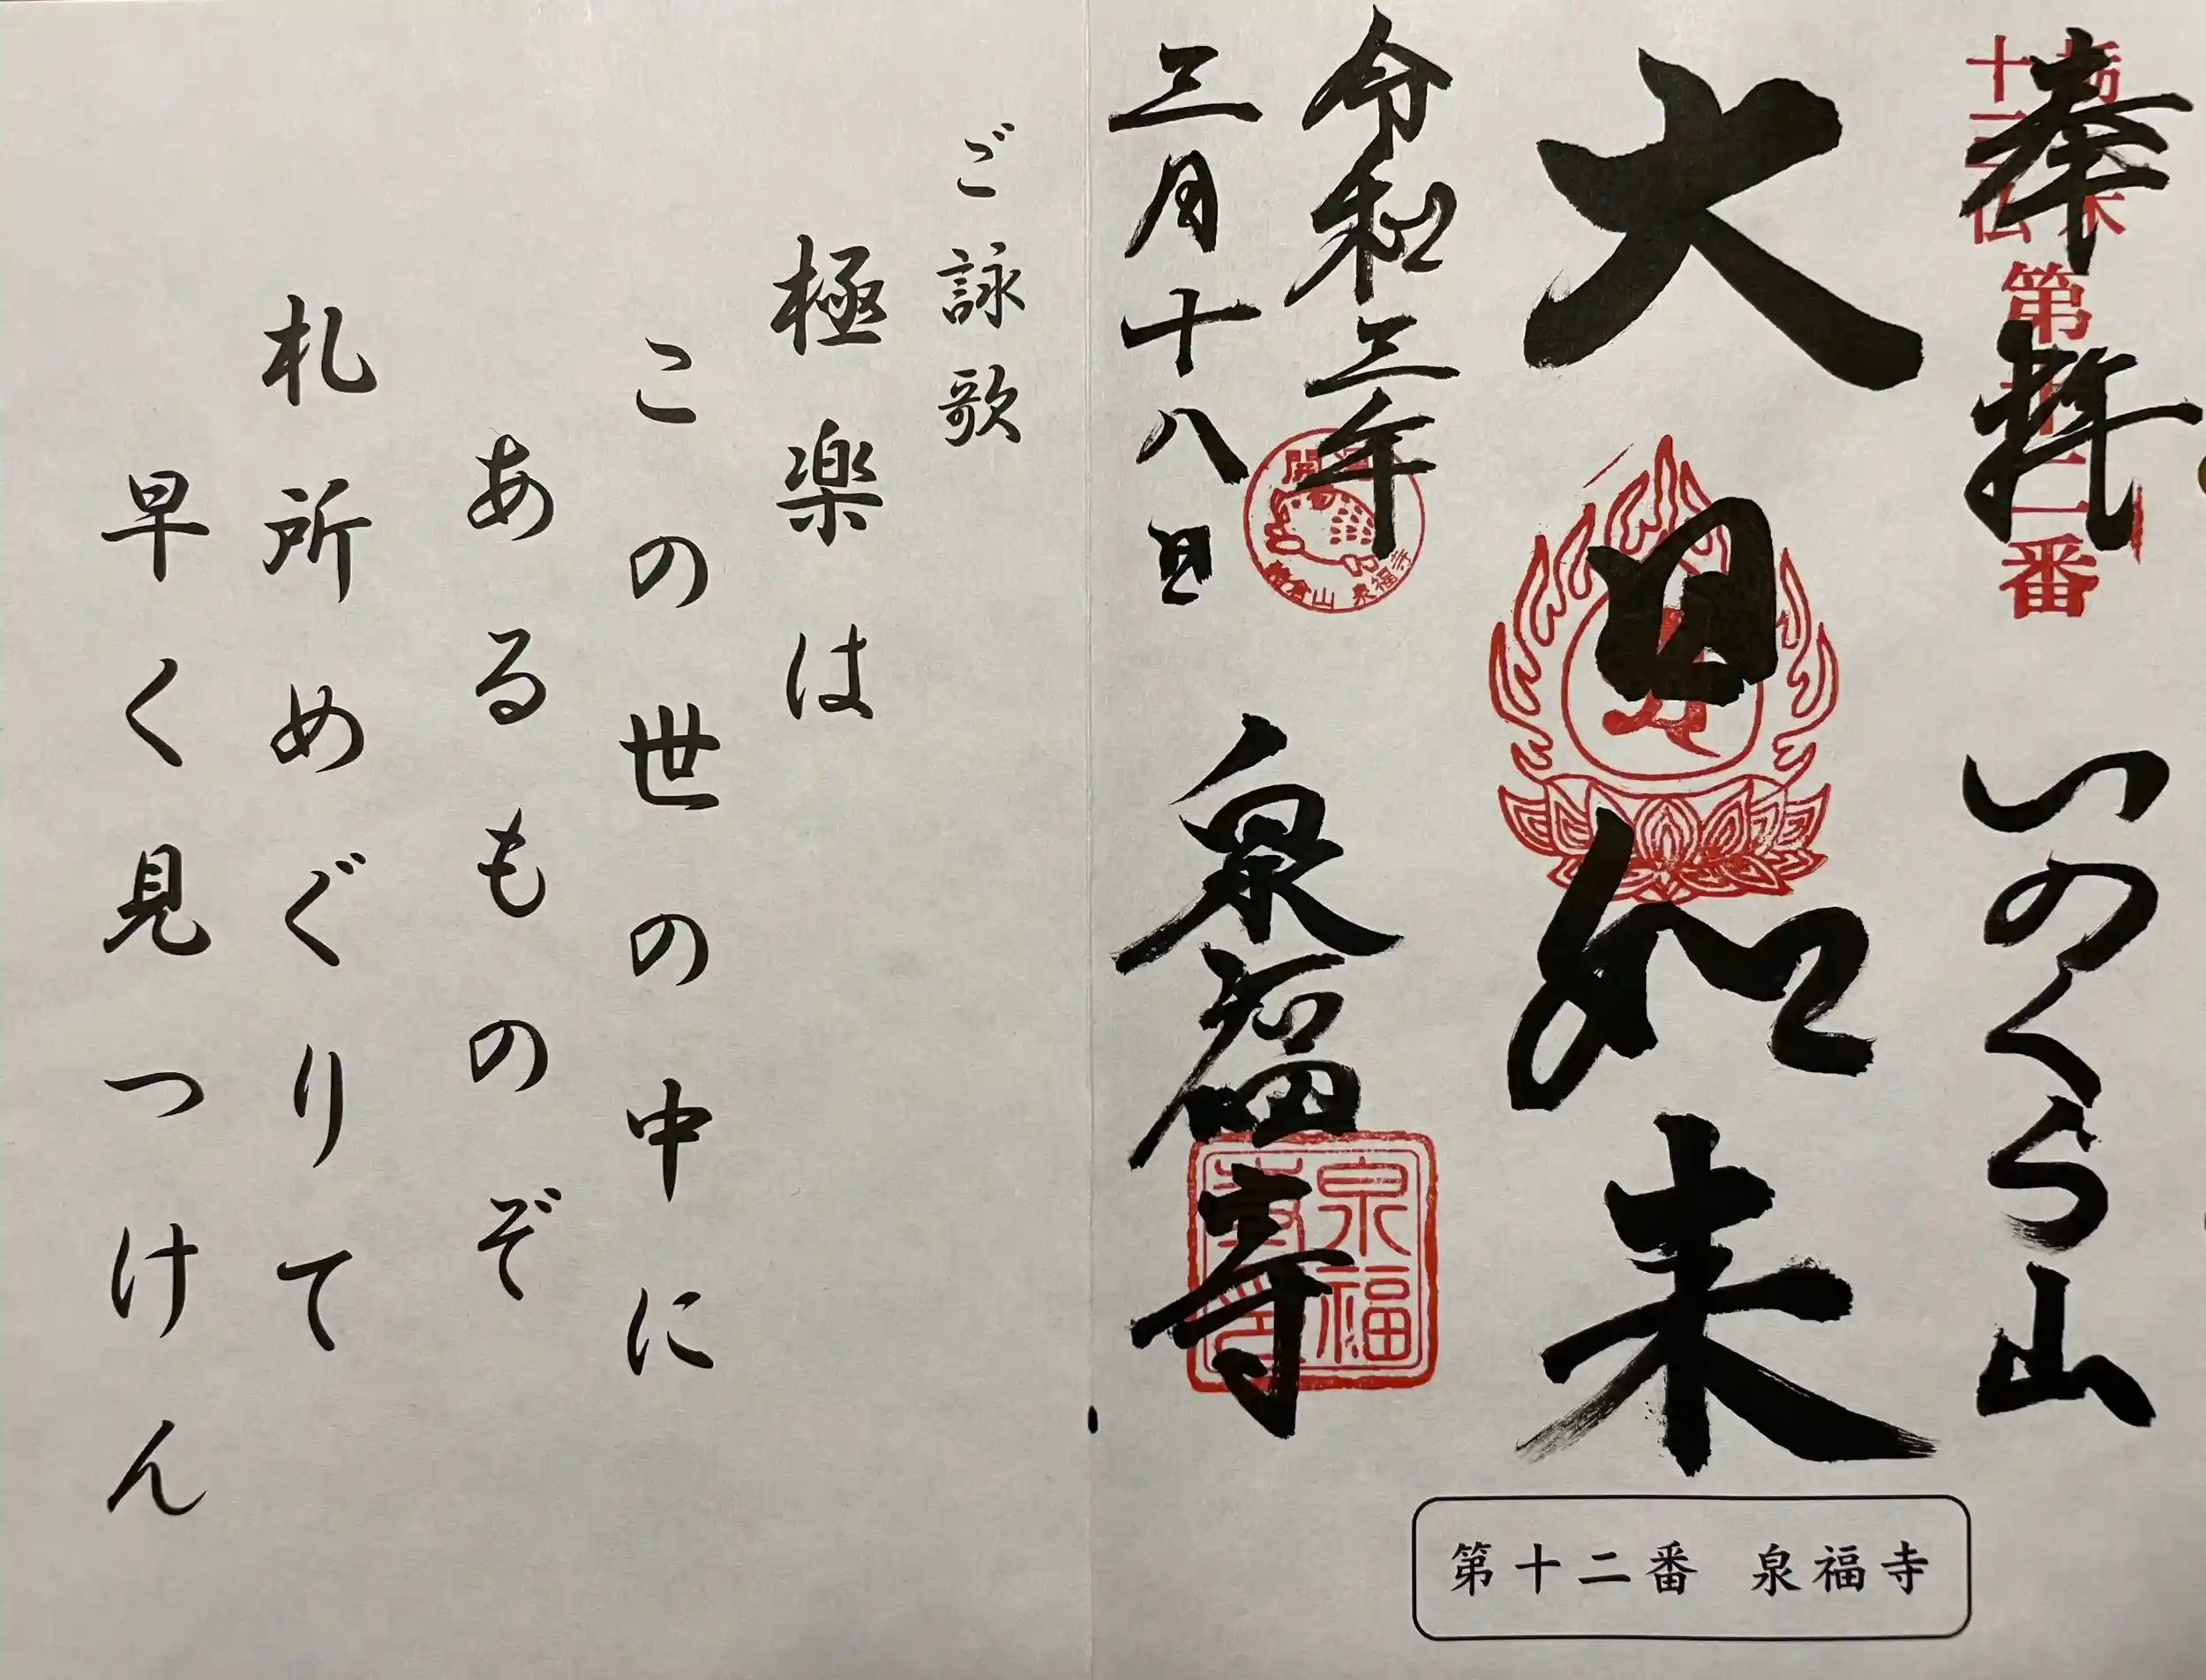 奉拝 いのくら山
第十二番
大日如来
令和三年
三月十八日
泉福寺
開運
泉福寺
泉福
第十二番 泉福寺
ご詠歌
極楽は
この世の中に
あるものぞ
札所めぐりて
早く見つけん